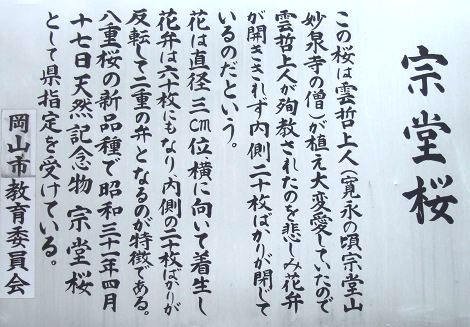 宗堂桜
この桜は雲哲上人(寛永の頃宗堂山
妙泉寺の僧)が植え大変愛していたので
雲哲上人が殉教されたのを悲しみ花弁
が開ききれず内側二十枚ばかりが閉じて
いるのだという。
花は直径三cm位横に向いて着生し
花弁は六十枚にもなり、内側の二十枚ばかりが
反転して二重の弁となるのが特徴である。
八重桜の新品種で昭和三十一年四月
十七日天然記念物 宗堂桜
として県指定を受けている。
岡山市教育委員会